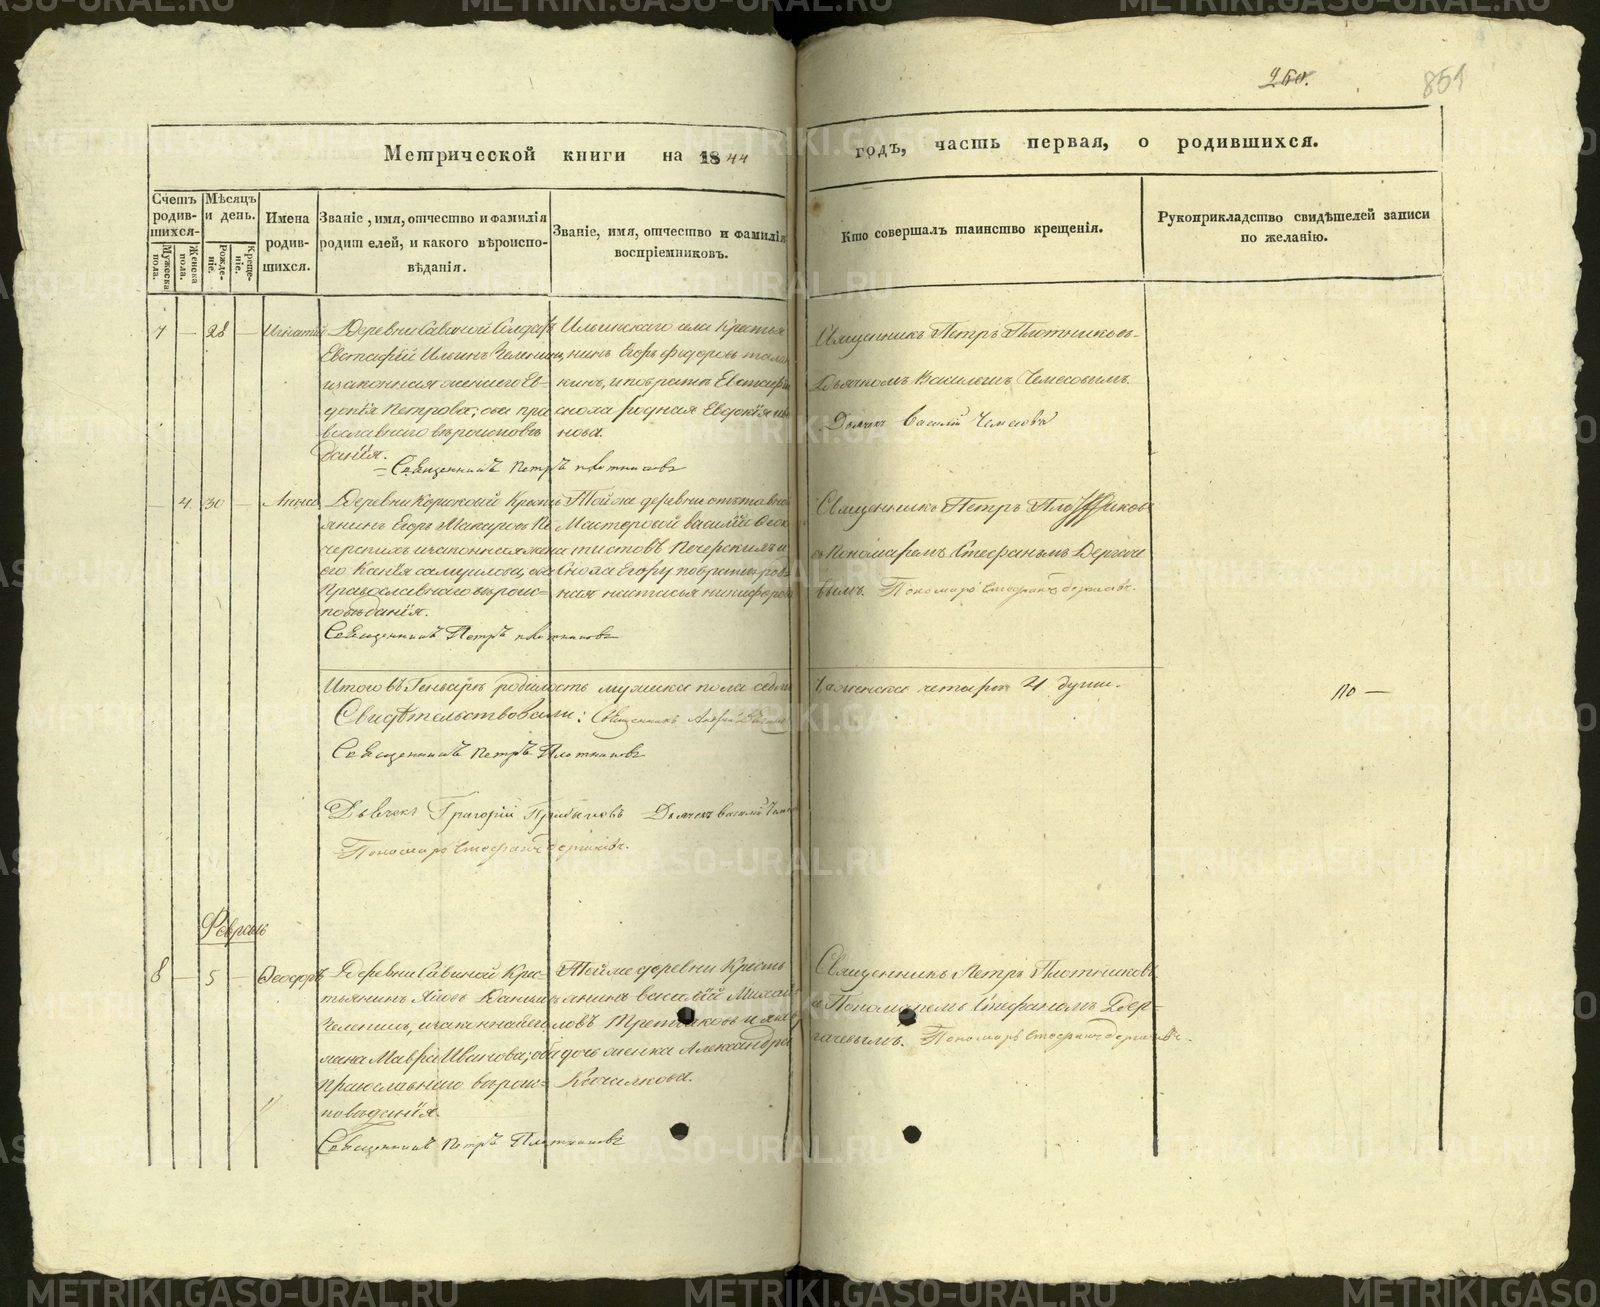 260.
851
Метрической книги на 1844 годъ, часть первая, о родившихся.
Счетъ родив-шихся.
Мужеска пола.
Женска пола.
Мѣсяцъ и день.
Рожде-ніе.
Креще-ніе.
Имена родив-шихся.
Званіе, имя, отчество и фамилія родителей, и какого вѣроиспо-вѣданія.
Званіе, имя, отчество и фамилія воспріемниковъ.
Кто совершалъ таинство крещенія.
Рукоприкладство свидѣтелей записи по желанію.
7 — 28 — Игнатій
Деревни Савиной Солдатъ
Евстафій Ильинъ Челенинъ
и законная жена его Ев-
докія Петрова; оба пра
вославнаго вѣроисповѣ
данія.
Священникъ Петръ Плотниковъ
Ильинскаго села Крестья
нинъ Егоръ Федоровъ
сноха родная Евдокія
нова.
Священникъ Петръ Плотниковъ
Дьячкомъ Василіемъ Чемесовымъ.
Дьячек Василій Чемесовъ
— 4 30 — Анна
Крест
янинъ Егоръ Макаровъ Пе
черскихъ и законная жена
его Ксенія Самуилова, оба
Православнаго вѣроис-
повѣданія.
Священникъ Петръ Плотниковъ
Той же деревни отставной
Мастеровой Василій Феок
тистовъ Печерскихъ и
Сноха Егору
ная Настасья Никифорова
Священникъ Петръ Плотниковъ
съ Пономаремъ Стефаномъ Дергаче
вымъ. Пономарь Стефанъ Дергачевъ.
Итого въ Генварѣ родилось мужеска пола седмь
7, а женска четыре 4 души.
110 —
Свидѣтельствовали: Священникъ Андрей
Священникъ Петръ Плотниковъ
Дьячекъ Григорій
Дьячекъ Василій Чемесовъ
Пономарь Стефанъ Дергачевъ.
Февраль
8 — 5 — Ѳеодоръ
Деревни Савиной Крес-
тьянинъ Яковъ Данил
Челенинъ, и законная его
жена Мавра Иванова; оба
Православнаго вѣроис-
повѣданія.
Священникъ Петръ Плотниковъ
Той же деревни Кресть
янинъ Василій Михай-
ловъ Третьяковъ и
дочь женка Александра
Священникъ Петръ Плотниковъ
съ Пономаремъ Стефаномъ Дер-
гачевымъ. Пономарь Стефанъ Дергачевъ.
METRIKI.GASO-URAL.RU